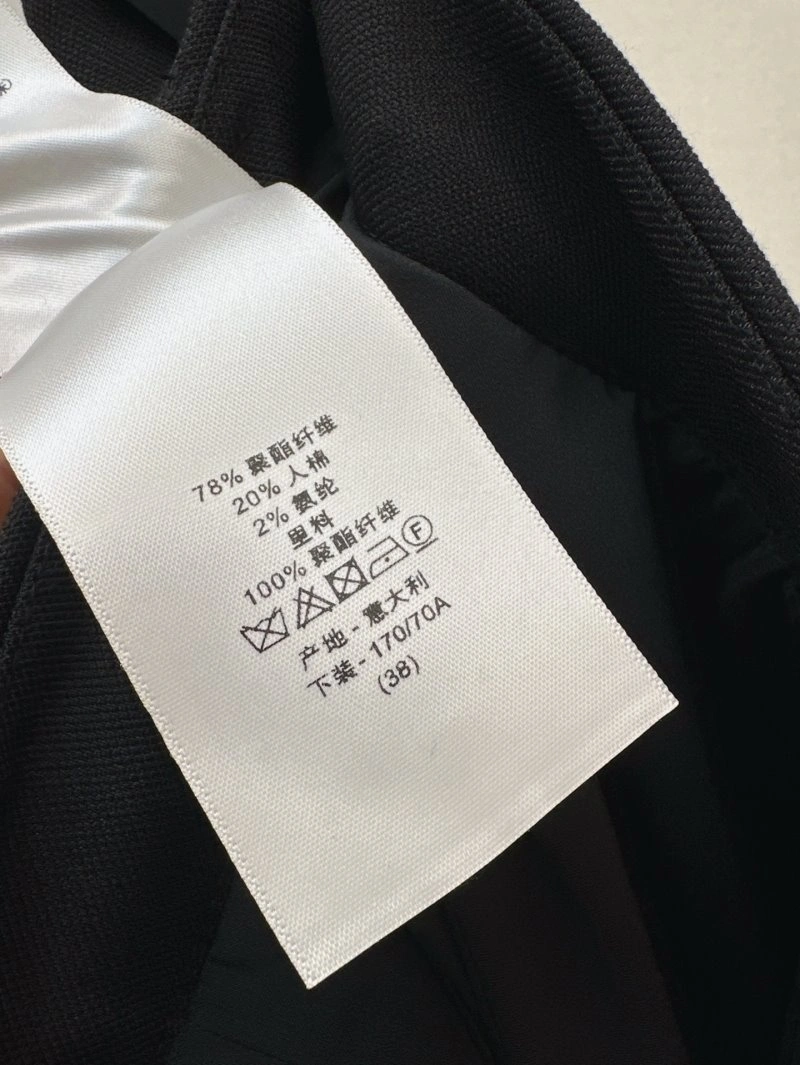 78% 聚酯纤维
20% 人棉
2% 氨纶
里料
100% 聚酯纤维
F
产地 - 意大利
下装 - 170/70A
(38)